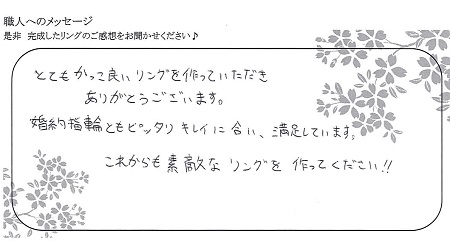 職人へのメッセージ
是非 完成したリングのご感想をお聞かせください♪
とてもかって良いリングを作っていただき
ありがとうございます。
婚約指輪ともピッタリキレイに合い、満足しています。
これからも素敵なリングを作ってください!!